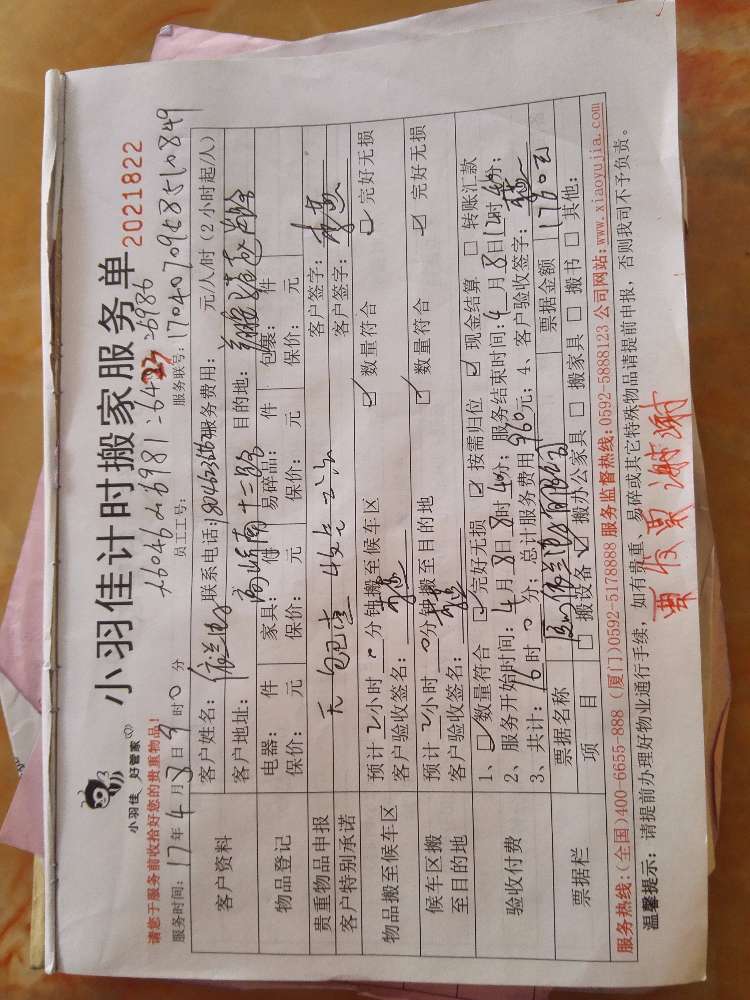 小羽佳 好管家
小羽佳计时搬家服务单
2021822
请您于服务前收拾好您的贵重物品!
员工工号:
服务时间: 17年4月8日9时0分
服务联号: 170407098510849
客户资料
客户姓名: 联系电话: 服务费用: 元/人/时 (2小时起/人)
客户地址: 目的地:
物品登记
电器: 件 家具: 件 易碎品: 件 包裹: 件
保价: 元 保价: 元 保价: 元 保价: 元
贵重物品申报 无 客户签字:
客户特别承诺 客户签字:
物品搬至候车区
预计2小时0分钟搬至候车区 ☑ 数量符合 ☑ 完好无损
客户验收签名:
候车区搬至目的地
预计2小时0分钟搬至目的地 ☑ 数量符合 ☑ 完好无损
客户验收签名:
验收付费
1、☑ 数量符合 ☑ 完好无损 ☑ 按需归位 ☑ 现金结算 □ 转账汇款
2、服务开始时间: 4月8日8时 分; 服务结束时间: 4月8日12时 分;
3、共计: 16时0分; 总计服务费用 960元; 4、客户验收签字:
票据栏
票据名称 票据金额 1760元
项目 □ 搬设备 ☑ 搬办公家具 □ 搬家具 □ 搬书 □ 其他:
服务热线: (全国)400-6655-888 (厦门)0592-5178888 服务监督热线: 0592-5888123 公司网站: www.xiaoyujia.com
温馨提示: 请提前办理好物业通行手续, 如有贵重、易碎或其它特殊物品请提前申报, 否则我司不予负责。
要发票谢谢